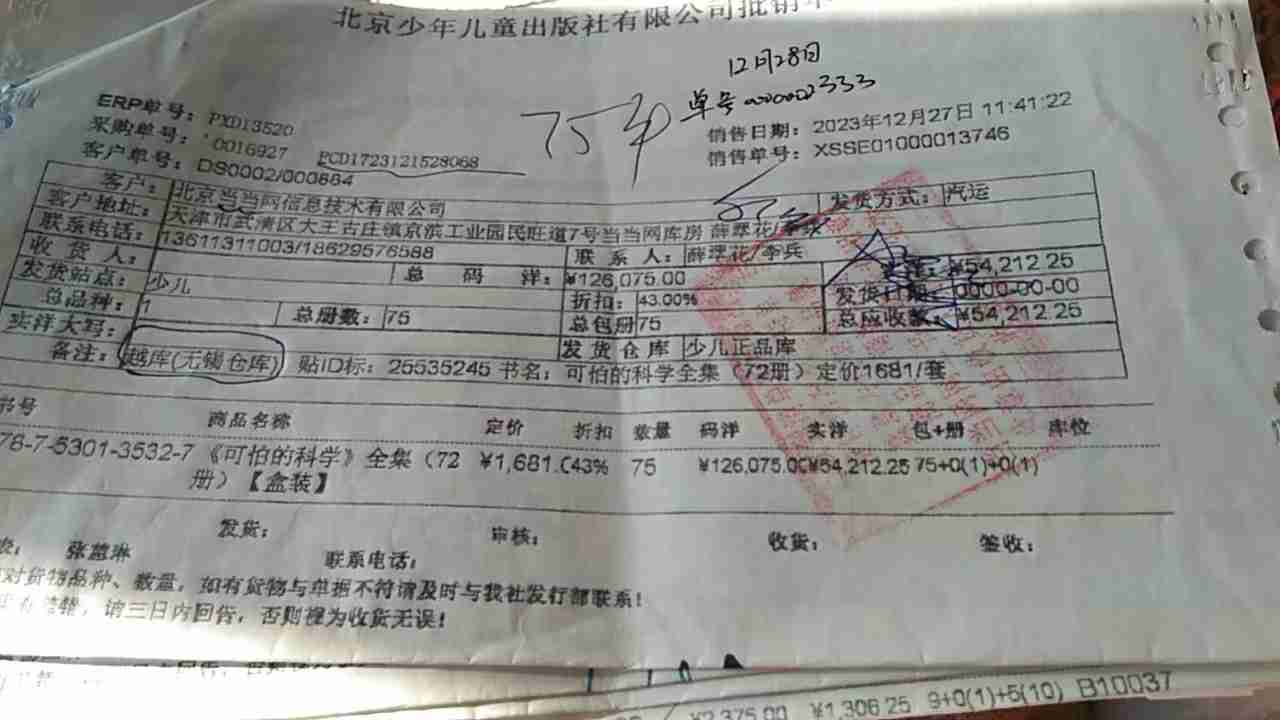 北京少年儿童出版社有限公司批销单
12月28日
75
单号 0000002333
ERP单号： PXD13520
销售日期： 2023年12月27日 11:41:22
采购单号： 0016927 PCD1723121528068
销售单号： XSSE01000013746
客户单号： DS0002/000684
客户： 北京当当网信息技术有限公司 发货方式： 汽运
客户地址： 天津市武清区大王古庄镇京滨工业园民旺道7号当当网库房 薛翠花/李兵
联系电话： 13611311003/18629576588 联系人： 薛翠花/李兵
收货人： 总码洋： ¥126,075.00 ¥54,212.25
发货站点： 少儿 折扣： 43.00% 发货日期： 0000-00-00
总品种： 1 总册数： 75 总包册 75 总应收款： ¥54,212.25
实洋大写： 发货仓库 少儿正品库
备注： 越库(无锡仓库) 贴ID标：25535245 书名：可怕的科学全集（72册）定价1681/套
书号 商品名称 定价 折扣 数量 码洋 实洋 包+册 库位
78-7-5301-3532-7 《可怕的科学》全集（72 ¥1,681.0 43% 75 ¥126,075.00 ¥54,212.25 75+0(1)+0(1)
册）【盒装】
发货： 审核： 收货： 签收：
联系电话：
对货物品种、数量，如有货物与单据不符请及时与我社发行部联系！
请三日内回告，否则视为收货无误！
¥2,375.00 ¥1,306.25 9+0(1)+5(10) B10037